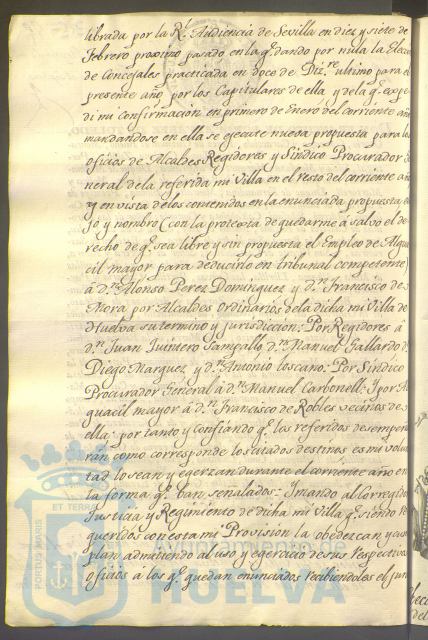 librada por la Rl. Audiencia de Sevilla en diez y siete de
Febrero proximo pasado en la q.e dando por nula la Elecc
de Concejales practicada en doce de Diz.re ultimo para el
presente año, por los Capitulares de ella y de la q.e expe
di mi confirmación en primero de Enero del corriente año
mandandose en ella se ejecute nueva propuesta para los
oficios de Alcaldes Regidores y Sindico Procurador Ge
neral de la referida mi Villa en el resto del corriente año
y en vista de los contenidos en la enunciada propuesta, eli
jo y nombro (con la protexta de quedarme á salvo el de
recho de q.e sea libre y sin propuesta el Empleo de Algua
cil mayor para deducirlo en tribunal competente)
á d.n Alonso Perez Dominguez y d.n Francisco de
Mora por Alcaldes Ordinarios de la dicha mi Villa de
Huelva su termino y jurisdiccion: Por Regidores á
d.n Juan Quintero Sampallo, d.n Manuel Gallardo, d.n
Diego Marquez y d.n Antonio Toscano: Por Sindico
Procurador General á d.n Manuel Carbonell: Y por Al
guacil mayor á d.n Francisco de Robles vecinos de
ella: por tanto y confiando q.e los referidos desempeña
rán como corresponde los citados destinos es mi volun
tad lo sean y egerzan durante el corriente año en
la forma q.e van señalados: Y mando al Corregidor
Justicia y Regimiento de dicha mi Villa q.e siendo re
queridos con esta mi Provision la obedezcan y cum
plan admitiendo al uso y egercicio de sus respectivos
oficios á los q.e quedan enunciados recibiendoles el jura
PORTUS MARIS
ET TERRAE
Ayuntamiento de
HUELVA